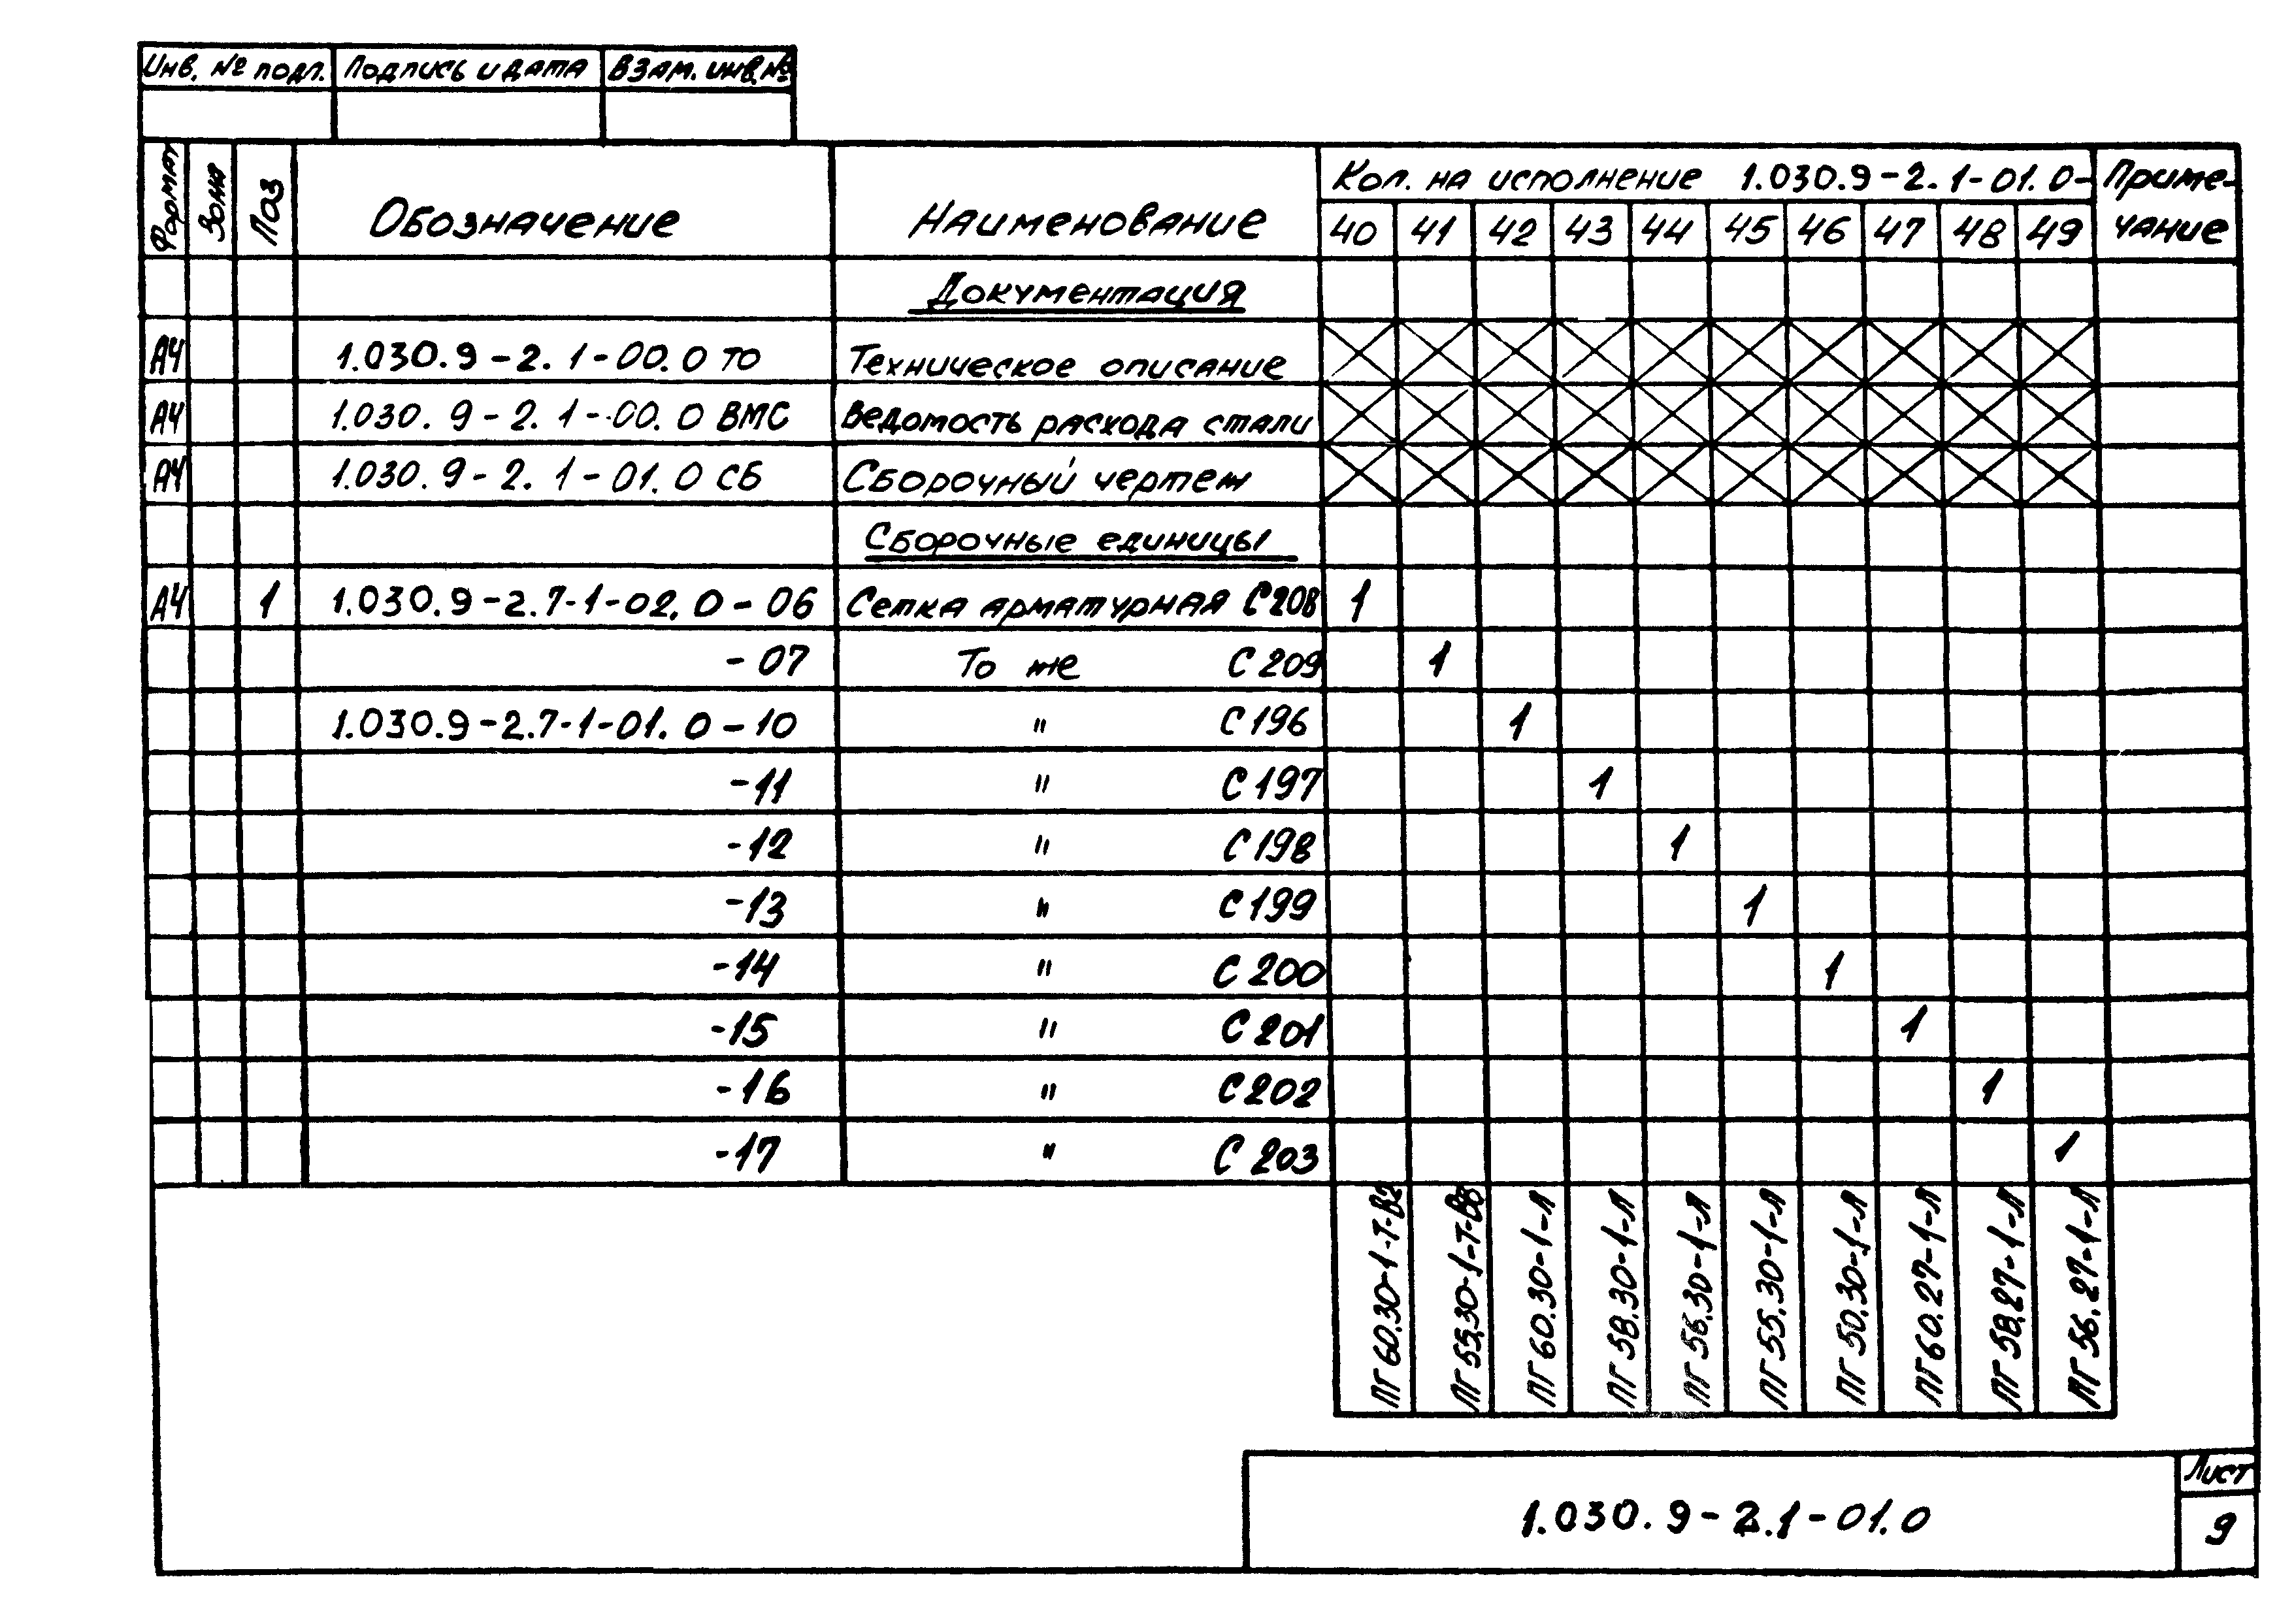 Инв. № подл. Подпись и дата Взам. инв. №
Формат Зона Поз Обозначение Наименование Кол. на исполнение 1.030.9-2.1-01.0- Приме-
40 41 42 43 44 45 46 47 48 49 чание
Документация
А4 1.030.9-2.1-00.0 ТО Техническое описание
А4 1.030.9-2.1-00.0 ВМС Ведомость расхода стали
А4 1.030.9-2.1-01.0 СБ Сборочный чертеж
Сборочные единицы
А4 1 1.030.9-2.7-1-02.0-06 Сетка арматурная С208 1
-07 То же С 209 1
1.030.9-2.7-1-01.0-10 " С 196 1
-11 " С 197 1
-12 " С 198 1
-13 " С 199 1
-14 " С 200 1
-15 " С 201 1
-16 " С 202 1
-17 " С 203 1
ПГ 60.30-1-Т-В2
ПГ 55.30-1-Т-В8
ПГ 60.30-1-Л
ПГ 58.30-1-Л
ПГ 56.30-1-Л
ПГ 55.30-1-Л
ПГ 50.30-1-Л
ПГ 60.27-1-Л
ПГ 58.27-1-Л
ПГ 56.27-1-Л
1.030.9-2.1-01.0
Лист
9